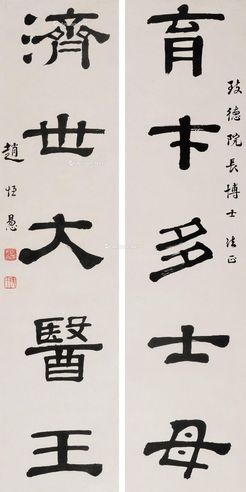 育才多士母
致德院長博士法正
濟世大醫王
趙恒惖